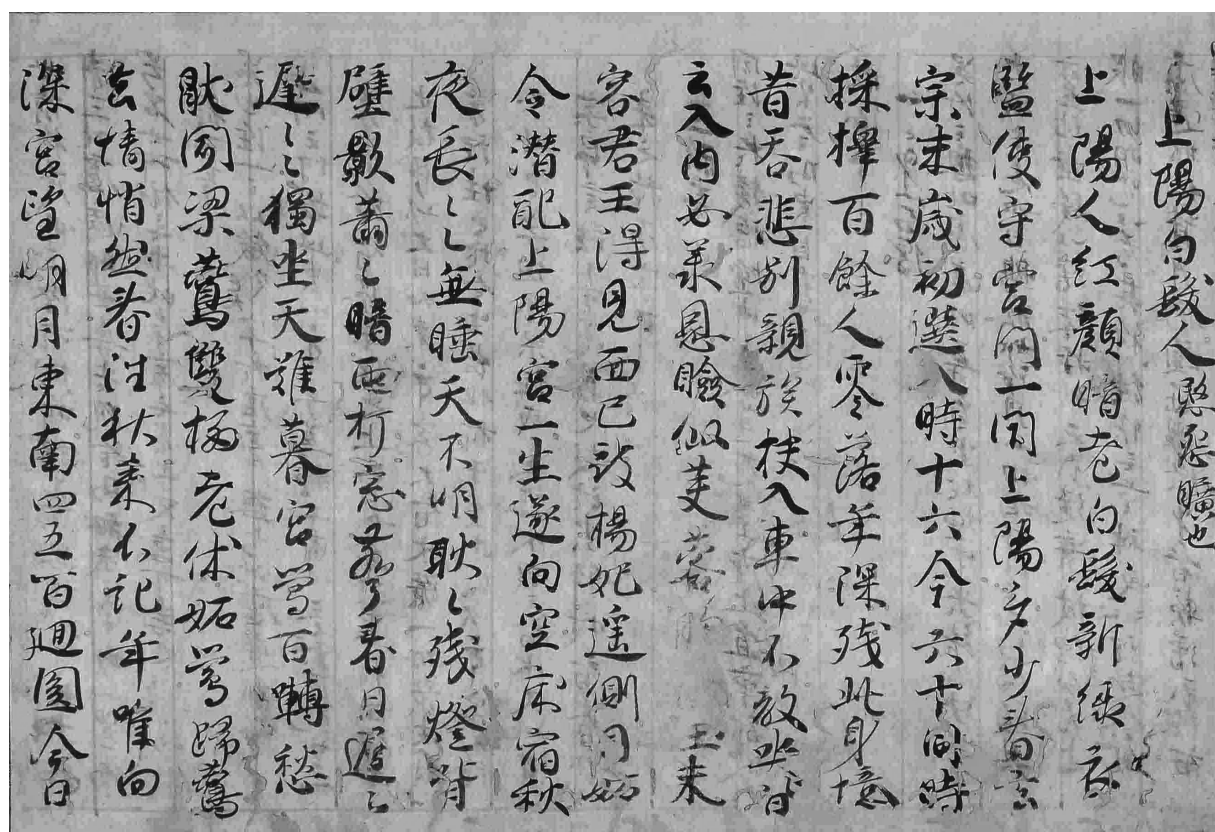 上陽白髮人 愍怨曠也
上陽人紅顏暗老白髮新綠衣
監使守宮門一閇上陽多少春玄
宗末歲初選入時十六今六十同時
採擇百餘人零落年深殘此身憶
昔吞悲別親族扶入車中不敎哭皆
云入內必承恩臉似芙蓉胸 玉未
容君王得見面已被楊妃遙側目妬
令潛配上陽宮一生遂向空床宿秋
夜長〻無睡天不明耿〻殘燈背
壁影蕭〻暗雨打窓聲春日遲〻
遲〻獨坐天難暮宮鶯百囀愁
猒聞梁鷰雙栖老休妬鶯歸鷰
去情悄然春往秋來不記年唯向
深宮望明月東南四五百迴圓今日